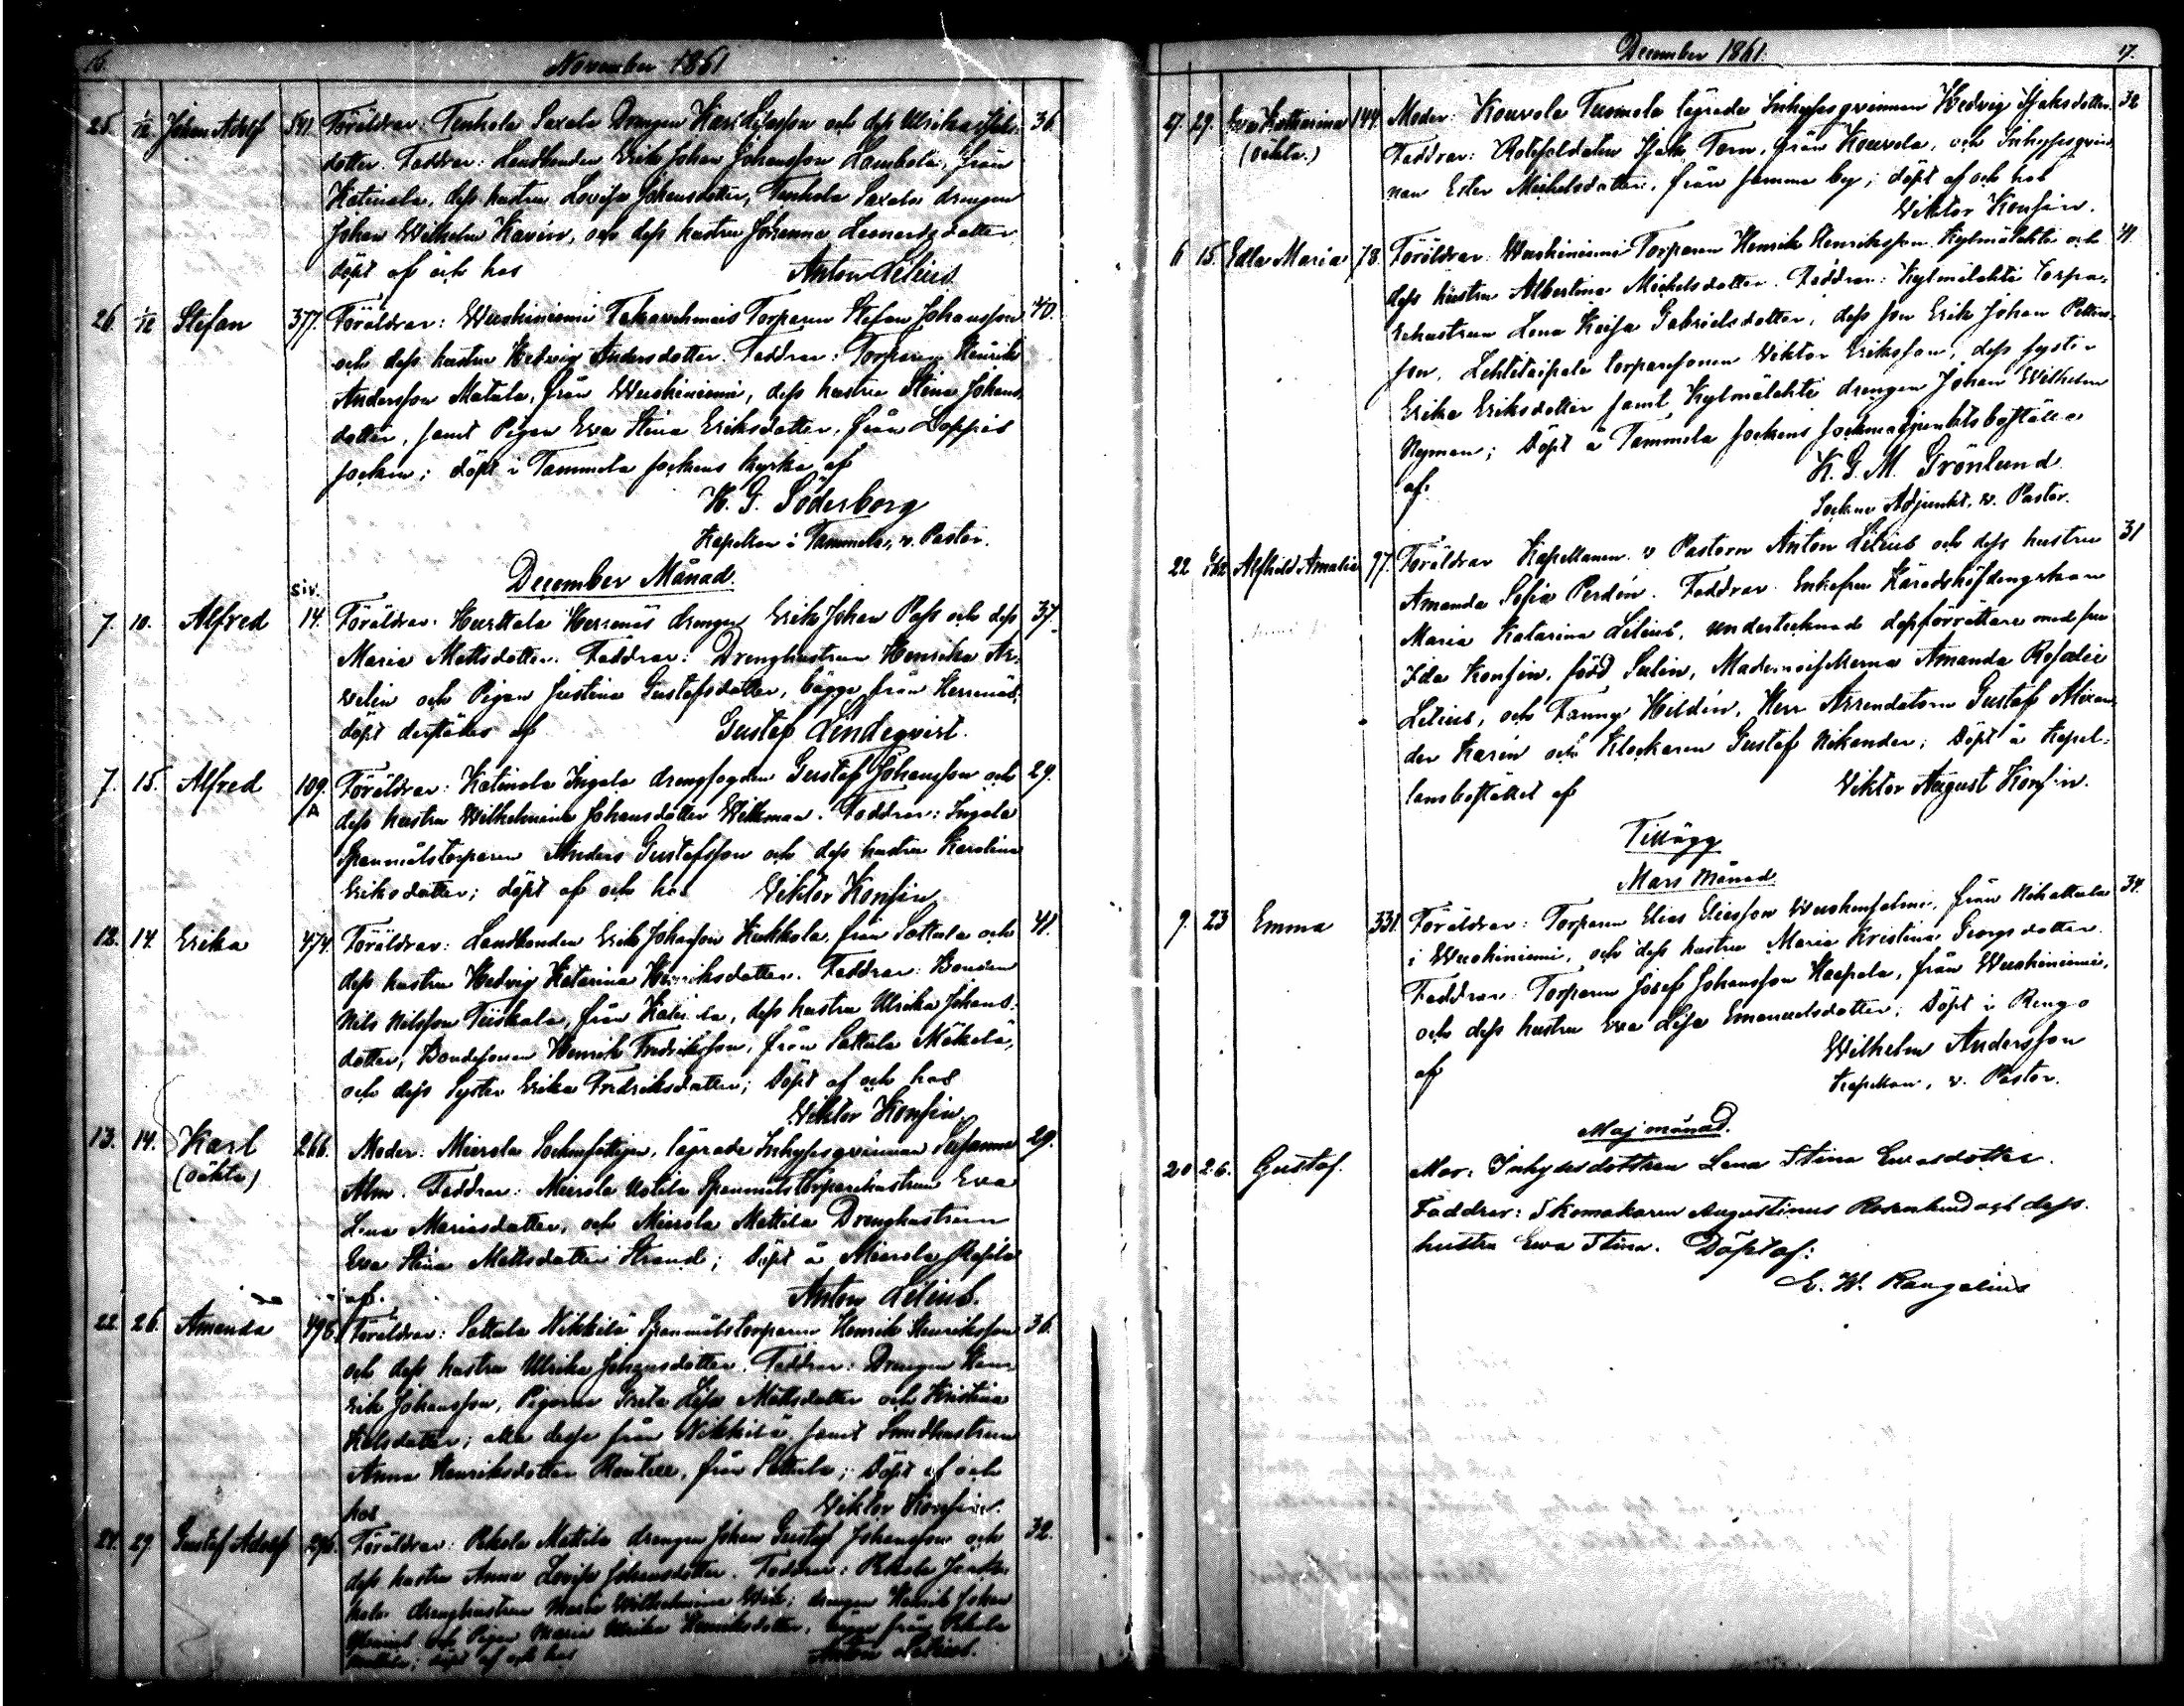 16.
November 1861
25. 1/12 Johan Adolf 541. Föräldrar: Tenhola Saxala Drengen Karl och dess Ulrika 36.
dotter. Faddrar: Landbonden Erik Johan Johansson Lambola, från
Katinala, dess hustru Lovisa Johansdotter, Tenhola Saxala drengen
Johan Wilhelm Kavén, och dess hustru Johanna Leonardsdotter,
döpt af och hos Anton Lilius
26. 1/12 Stefan 377. Föräldrar: Wuohiniemi Torparen Stefan Johansson 40.
och dess hustru Hedvig Andersdotter. Faddrar: Torparen Henrik
Andersson Matala, från Wuohiniemi, dess hustru Stina Johans-
dotter, samt Pigan Eva Stina Eriksdotter, från Loppis
socken; döpt i Tammela sockens kyrka af
K. G. Söderborg
Kapellan i Tammela, v. Pastor.
December Månad.
siv.
7. 10. Alfred 14. Föräldrar: Hurttala Herrnäs drengen Erik Johan Pass och dess 37.
Maria Mattsdotter. Faddrar: Drenghustrun Henrika Ar-
velin och Pigan Justina Gustafsdotter, bägge från Herrnäs;
döpt derstädes af Gustaf Lindeqvist.
7. 15. Alfred 109. Föräldrar: Katinala Ingala drengfogden Gustaf Johansson och 29.
A dess hustru Wilhelmina Johansdotter Wilkman. Faddrar: Ingala
Spanmålstorparen Anders Gustafsson och dess hustru Karolina
Eriksdotter; döpt af och hos Viktor Konsin
12. 14. Erika 474. Föräldrar: Landbonden Erik Johansson Kukkola, från Sattula och 41.
dess hustru Hedvig Katarina Henriksdotter. Faddrar: Bonden
Nils Nilsson Tiiskala, från, dess hustru Ulrika Johans-
dotter, Bondesonen Henrik Fredriksson, från Sattula Mäkelä,
och dess Syster Erika Fredriksdotter; döpt af och hos
Viktor Konsin
13. 14. Karl 266. Moder: Mierola Sockenfattigen, lägrade Inhysesqvinnan Susanna 29.
(oäkta) Alm. Faddrar: Mierola Uotila Spanmålstorparehustrun Eva
Lena Mariasdotter, och Mierola Mattila Drenghustrun
Eva Stina Mattsdotter Strand; döpt å Mierola
af. Anton Lilius.
22. 26. Amanda 496. Föräldrar: Sattula Nikkilä Spanmålstorparen Henrik Henriksson 36.
och dess hustru Ulrika Johansdotter. Faddrar: Drengen Hen-
rik Johansson, Pigorna Greta Lisa Mattsdotter och Kristina
Karlsdotter; alla desse från Nikkilä, samt Smedhustrun
Anna Henriksdotter, från Sattula; döpt af och
hos Viktor Konsin.
24. 29 Gustaf Adolf 296. Föräldrar: Pekola Mattila drengen Johan Gustaf Johansson och 32.
dess hustru Anna Lovisa Johansdotter. Faddrar: Pekola
drenghustrun Maria Wilhelmina, drengen Henrik Johan
och Pigan Maria Ulrika Henriksdotter, från Pekola
Mattila; döpt af och hos Anton Lilius.
December 1861.
17.
27. 29. Eva Katharina 144. Moder: Kouvola Tuomola lägrade Inhysesqvinnan Hedvig Isaksdotter. 32
(oäkta.) Faddrar: Rotesoldaten Isak Torn, från Kouvola, och Inhysesqvin-
nan Ester Mickelsdotter, från samma by; döpt af och hos
Viktor Konsin.
6 15. Edla Maria 78. Föräldrar: Wuohiniemi Torparen Henrik Henriksson Kylmälahti och 41.
dess hustru Albertina Mickelsdotter. Faddrar: Kylmälahti Torpa-
rehustrun Lena Kaisa Gabrielsdotter, dess son Erik Johan
son, torparesonen Viktor Eriksson, dess syster
Erika Eriksdotter samt Kylmälahti drengen Johan Wilhelm
Nyman; döpt å Tammela sockens sockneadjunktsboställe
af. K. G. M. Grönlund
Sockne Adjunkt, v. Pastor.
22 Alfhild Amalia 97. Föräldrar Kapellanen v Pastorn Anton Lilius och dess hustru 31
Amanda Sofia Perdén. Faddrar: Enkefru Häradshöfdingskan
Maria Katarina Lilius, undertecknad dopförrättare med fru
Ida Konsin, född Salin, Mademoisellerna Amanda Rosalie
Lilius, och Fanny Hildén, Herr Arrendatorn Gustaf Alexan-
der Karén och Klockaren Gustaf Nikander; döpt å Kapel-
lansbostället af Viktor August Konsin.
Tillägg
Mars Månad
9. 23 Emma 331. Föräldrar: Torparen Elias Eliasson, från Nihattula 34.
i Wuohiniemi, och dess hustru Maria Kristina Georgsdotter.
Faddrar: Torparen Josef Johansson Haapala, från Wuohiniemi,
och dess hustru Eva Lisa Emanuelsdotter; döpt i Rengo
af Wilhelm Andersson
Kapellan, v. Pastor.
Maj månad.
20 26. Gustaf. Mor: Inhysesdottren Lena Stina Evasdotter.
Faddrar: Skomakaren Augustinus Rosenlund och dess
hustru Ewa Stina. Döpt af:
E. W. Rangelius